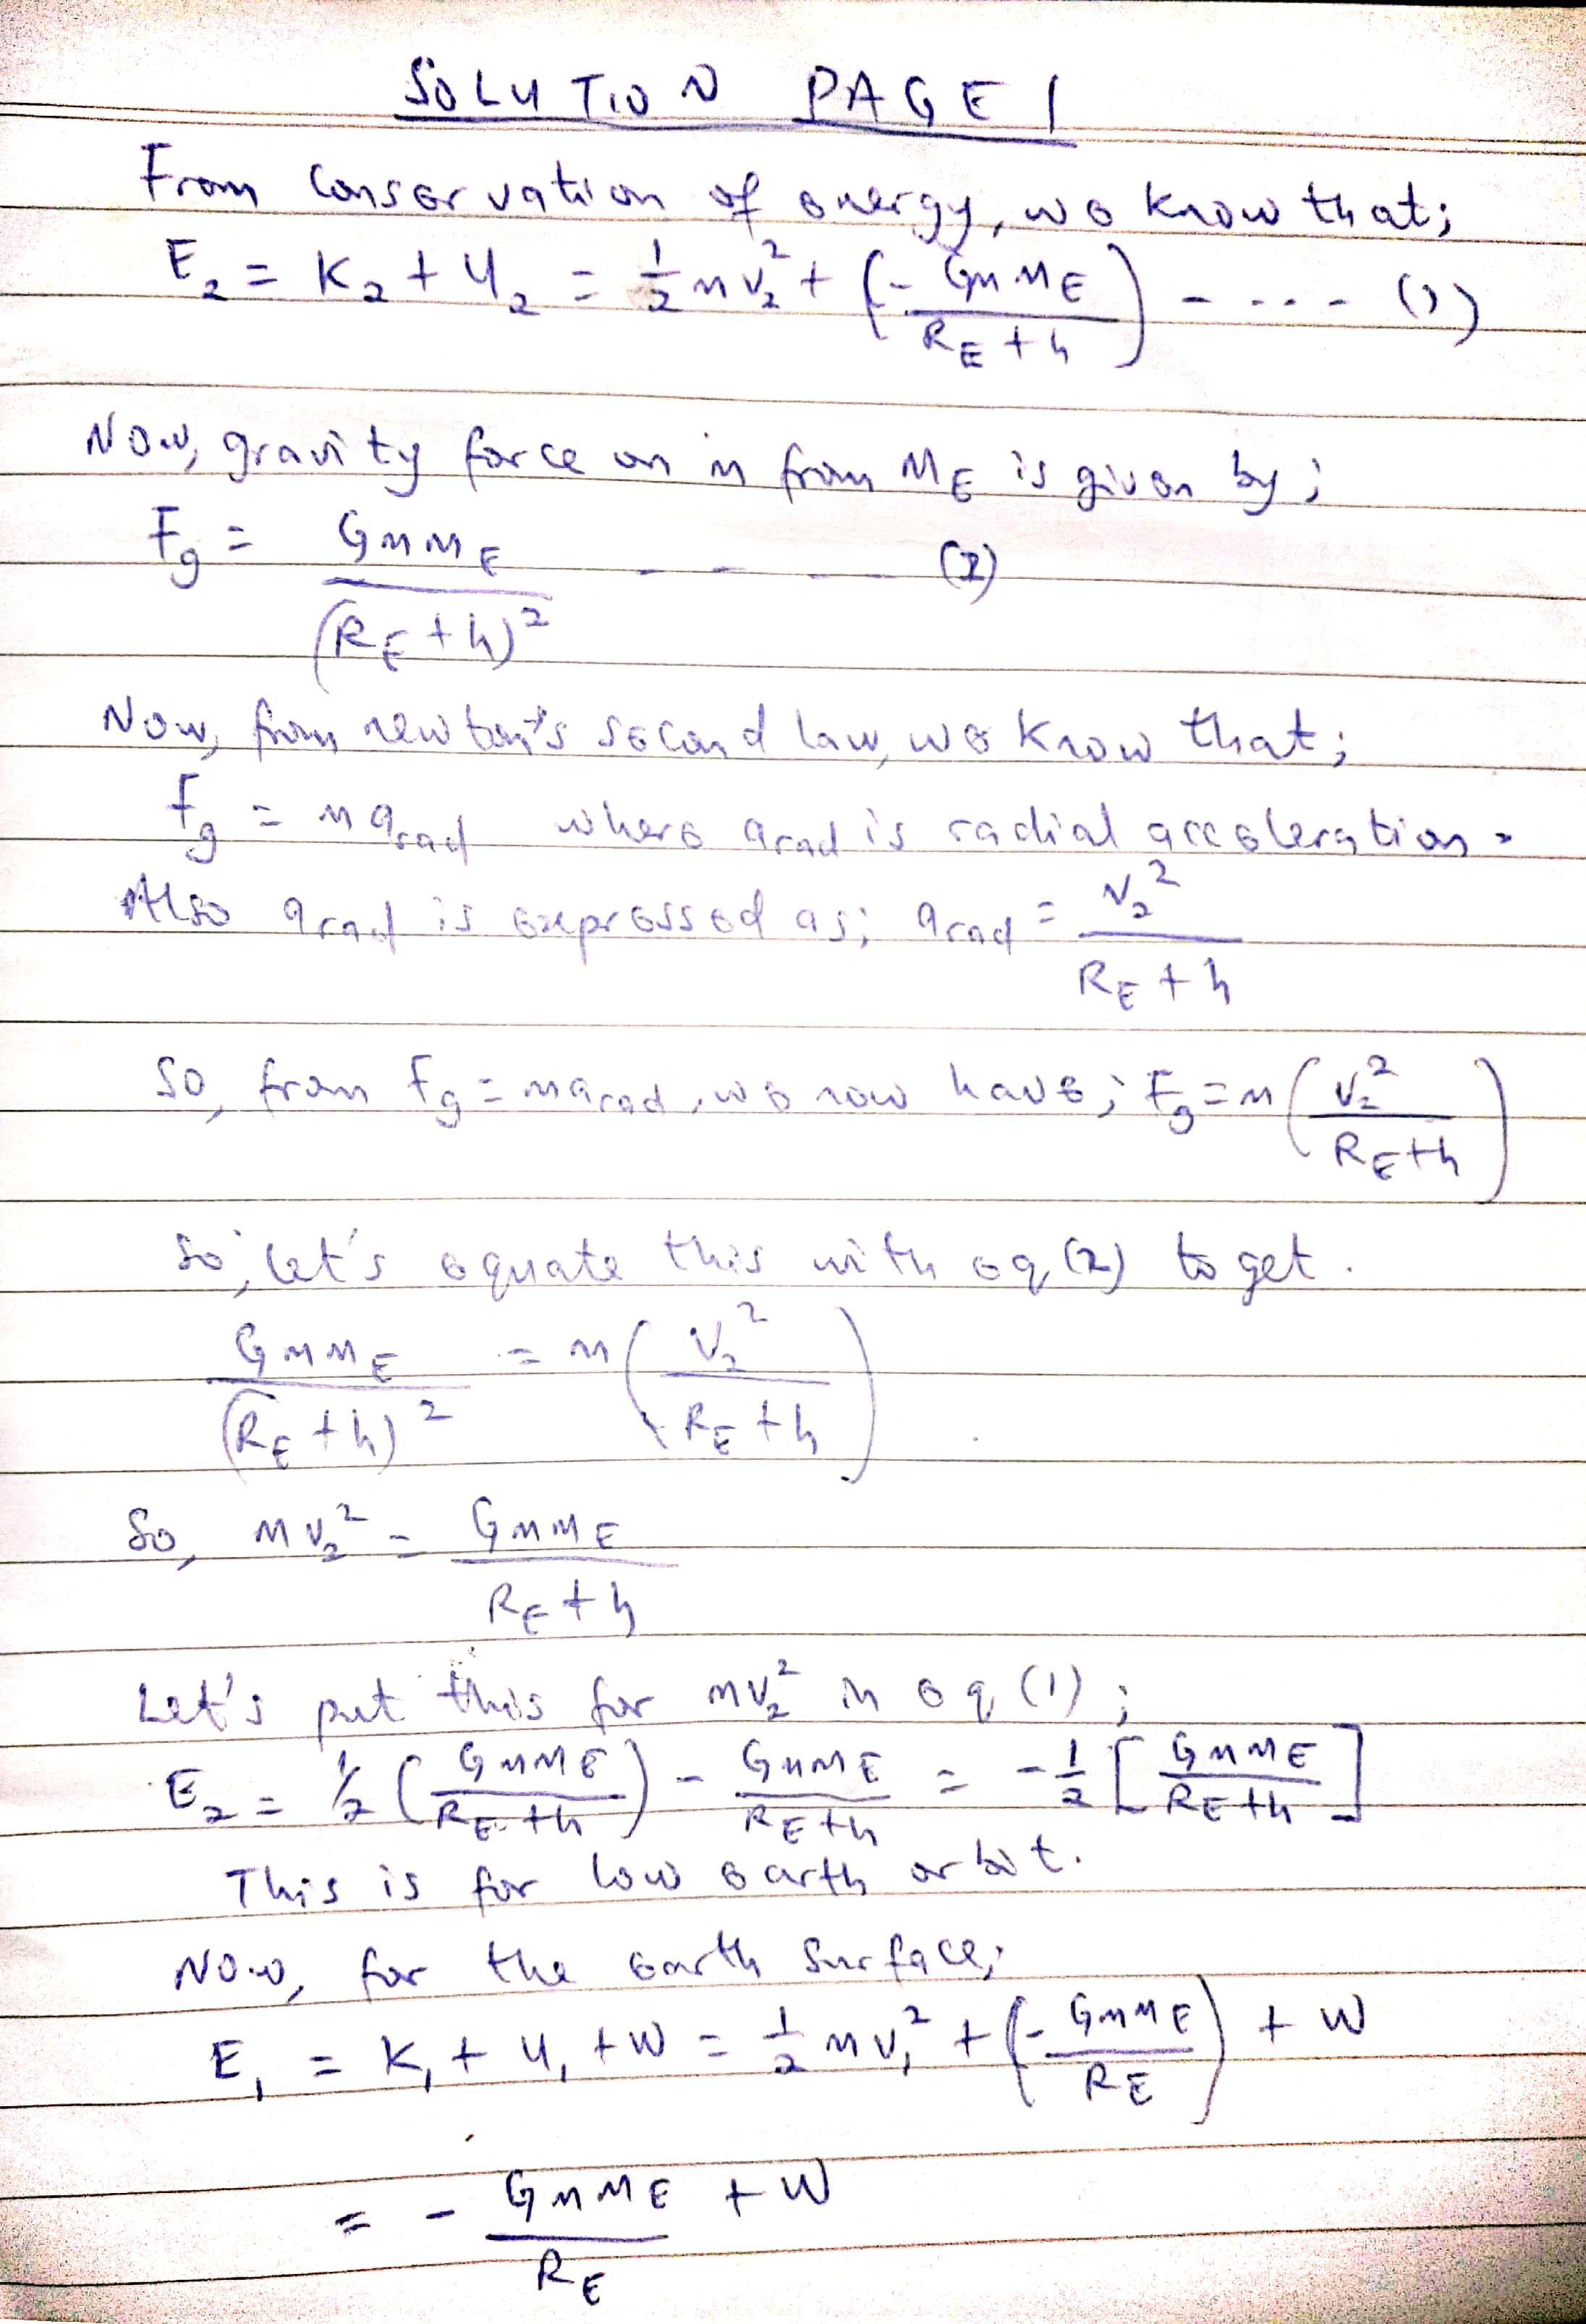 SOLUTION PAGE 1
From Conservation of energy, we know that;
E₂ = K₂ + U₂ = ½ mv₂² + (- GmME / RE + h) - - - - (1)
Now, gravity force on m from ME is given by;
Fg = GmME / (RE + h)² - - - (2)
Now, from newton's second law, we know that;
Fg = m arad where arad is radial acceleration.
Also arad is expressed as; arad = v₂² / RE + h
So, from Fg = marad, we now have; Fg = m (v₂² / RE+h)
So, let's equate this with eq (2) to get.
GmME / (RE + h)² = m (v₂² / RE + h)
So, mv₂² = GmME / RE + h
Let's put this for mv₂² in eq (1);
E₂ = ½ (GmME / RE + h) - GmME / RE + h = - ½ [GmME / RE + h]
This is for low earth orbit.
Now, for the earth surface;
E₁ = K₁ + U₁ + W = ½ mv₁² + (- GmME / RE) + W
= - GmME / RE + W